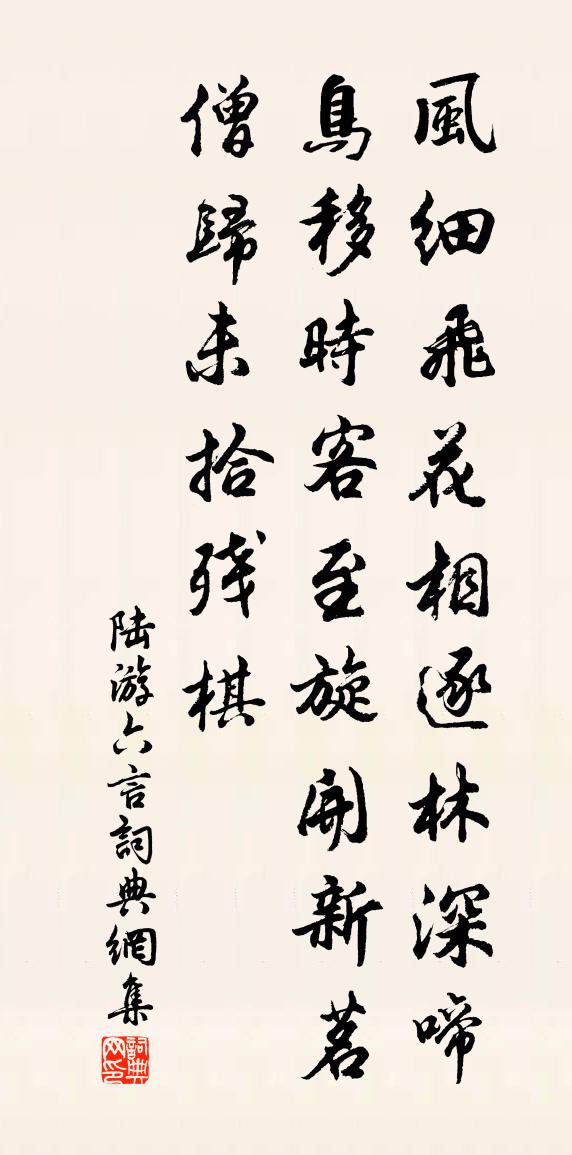 風細飛花相逐林深啼
鳥移時客至旋開新茗
僧歸未拾殘棋
陆游六言詞典網集
詞典网印